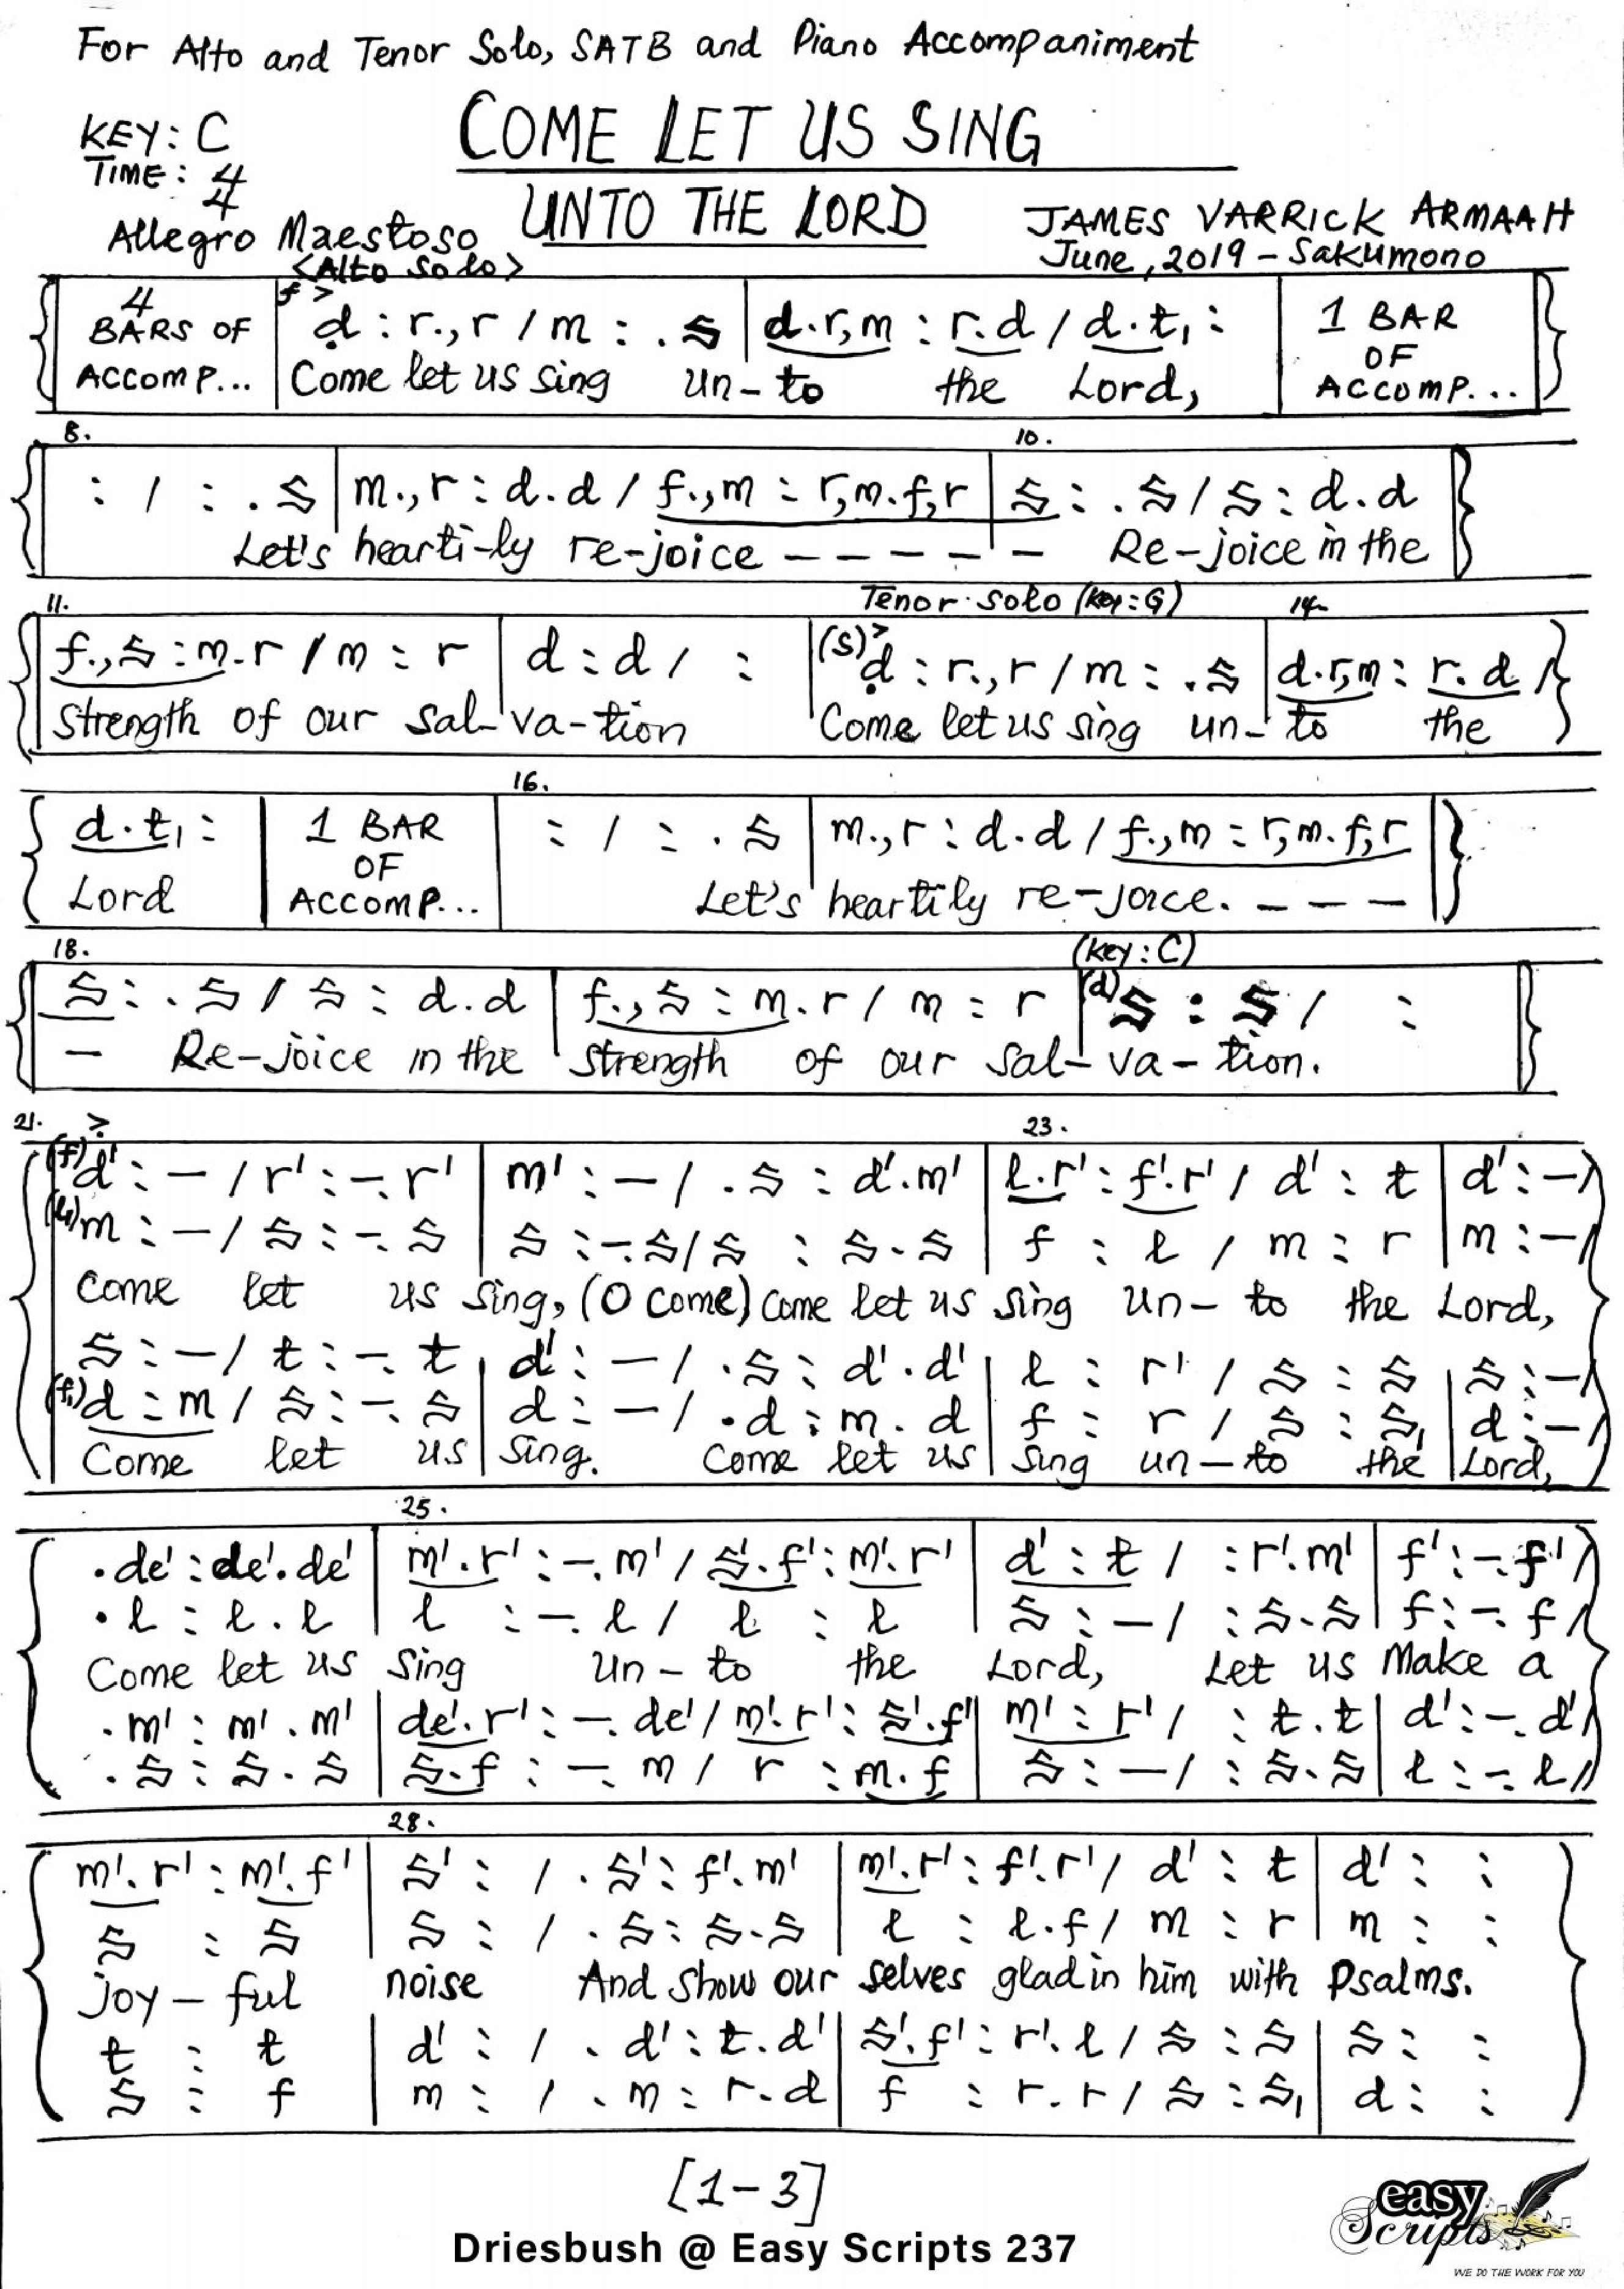 For Alto and Tenor Solo, SATB and Piano Accompaniment
KEY: C
COME LET US SING
TIME: 4/4
UNTO THE LORD
JAMES VARRICK ARMAAH
Allegro Maestoso
June, 2019 - Sakumono
<Alto Solo>
f >
4 BARS OF ACCOMP... | d : r.,r / m : .s | d.r,m : r.d / d.t, : | 1 BAR OF ACCOMP...
Come let us sing un-to the Lord,
8. 10.
: / : .s | m.,r : d.d / f.,m : r,m.f,r | s : .s / s : d.d
Let's hearti-ly re-joice ----- Re-joice in the
11. Tenor Solo (Key: G) 14.
f.,s : m.r / m : r | d : d / : | (s) > d : r.,r / m : .s | d.r,m : r.d /
Strength of our Sal-va-tion Come let us sing un-to the
16.
d.t, : | 1 BAR OF ACCOMP... | : / : .s | m.,r : d.d / f.,m : r,m.f,r |
Lord Let's heartily re-joice. ---
18. (Key: C)
s : .s / s : d.d | f.,s : m.r / m : r | (d) s : s / :
- Re-joice in the Strength of our Sal-va-tion.
21. > 23.
(f) d' : - / r' : -. r' | m' : - / .s : d'.m' | l.r' : f'.r' / d' : t | d' : - /
(l,) m : - / s : -. s | s : -.s / s : s.s | f : l / m : r | m : - /
Come let us sing, (O come) come let us sing un-to the Lord,
s : - / t : -. t | d' : - / .s : d'.d' | l : r' / s : s | s : - /
(f,) d : m / s : -. s | d : - / .d : m.d | f : r / s : s, | d : - /
Come let us sing. Come let us sing un-to the Lord,
25.
.de' : de'.de' | m'.r' : -. m' / s'.f' : m'.r' | d' : t / : r'.m' | f' : -. f' /
.l : l.l | l : -. l / l : l | s : - / : s.s | f : -. f /
Come let us sing un-to the Lord, Let us Make a
.m' : m'.m' | de'.r' : -. de' / m'.r' : s'.f' | m' : r' / : t.t | d' : -. d' /
.s : s.s | s.f : -. m / r : m.f | s : - / : s.s | l : -. l /
28.
m'.r' : m'.f' | s' : / .s' : f'.m' | m'.r' : f'.r' / d' : t | d' : :
s : s | s : / .s : s.s | l : l.f / m : r | m : :
joy-ful noise And show our selves glad in him with Psalms.
t : t | d' : / .d' : t.d' | s'.f' : r'.l / s : s | s : :
s : f | m : / .m : r.d | f : r.r / s : s, | d : :
[1-3]
Driesbush @ Easy Scripts 237
easy
Scripts
WE DO THE WORK FOR YOU